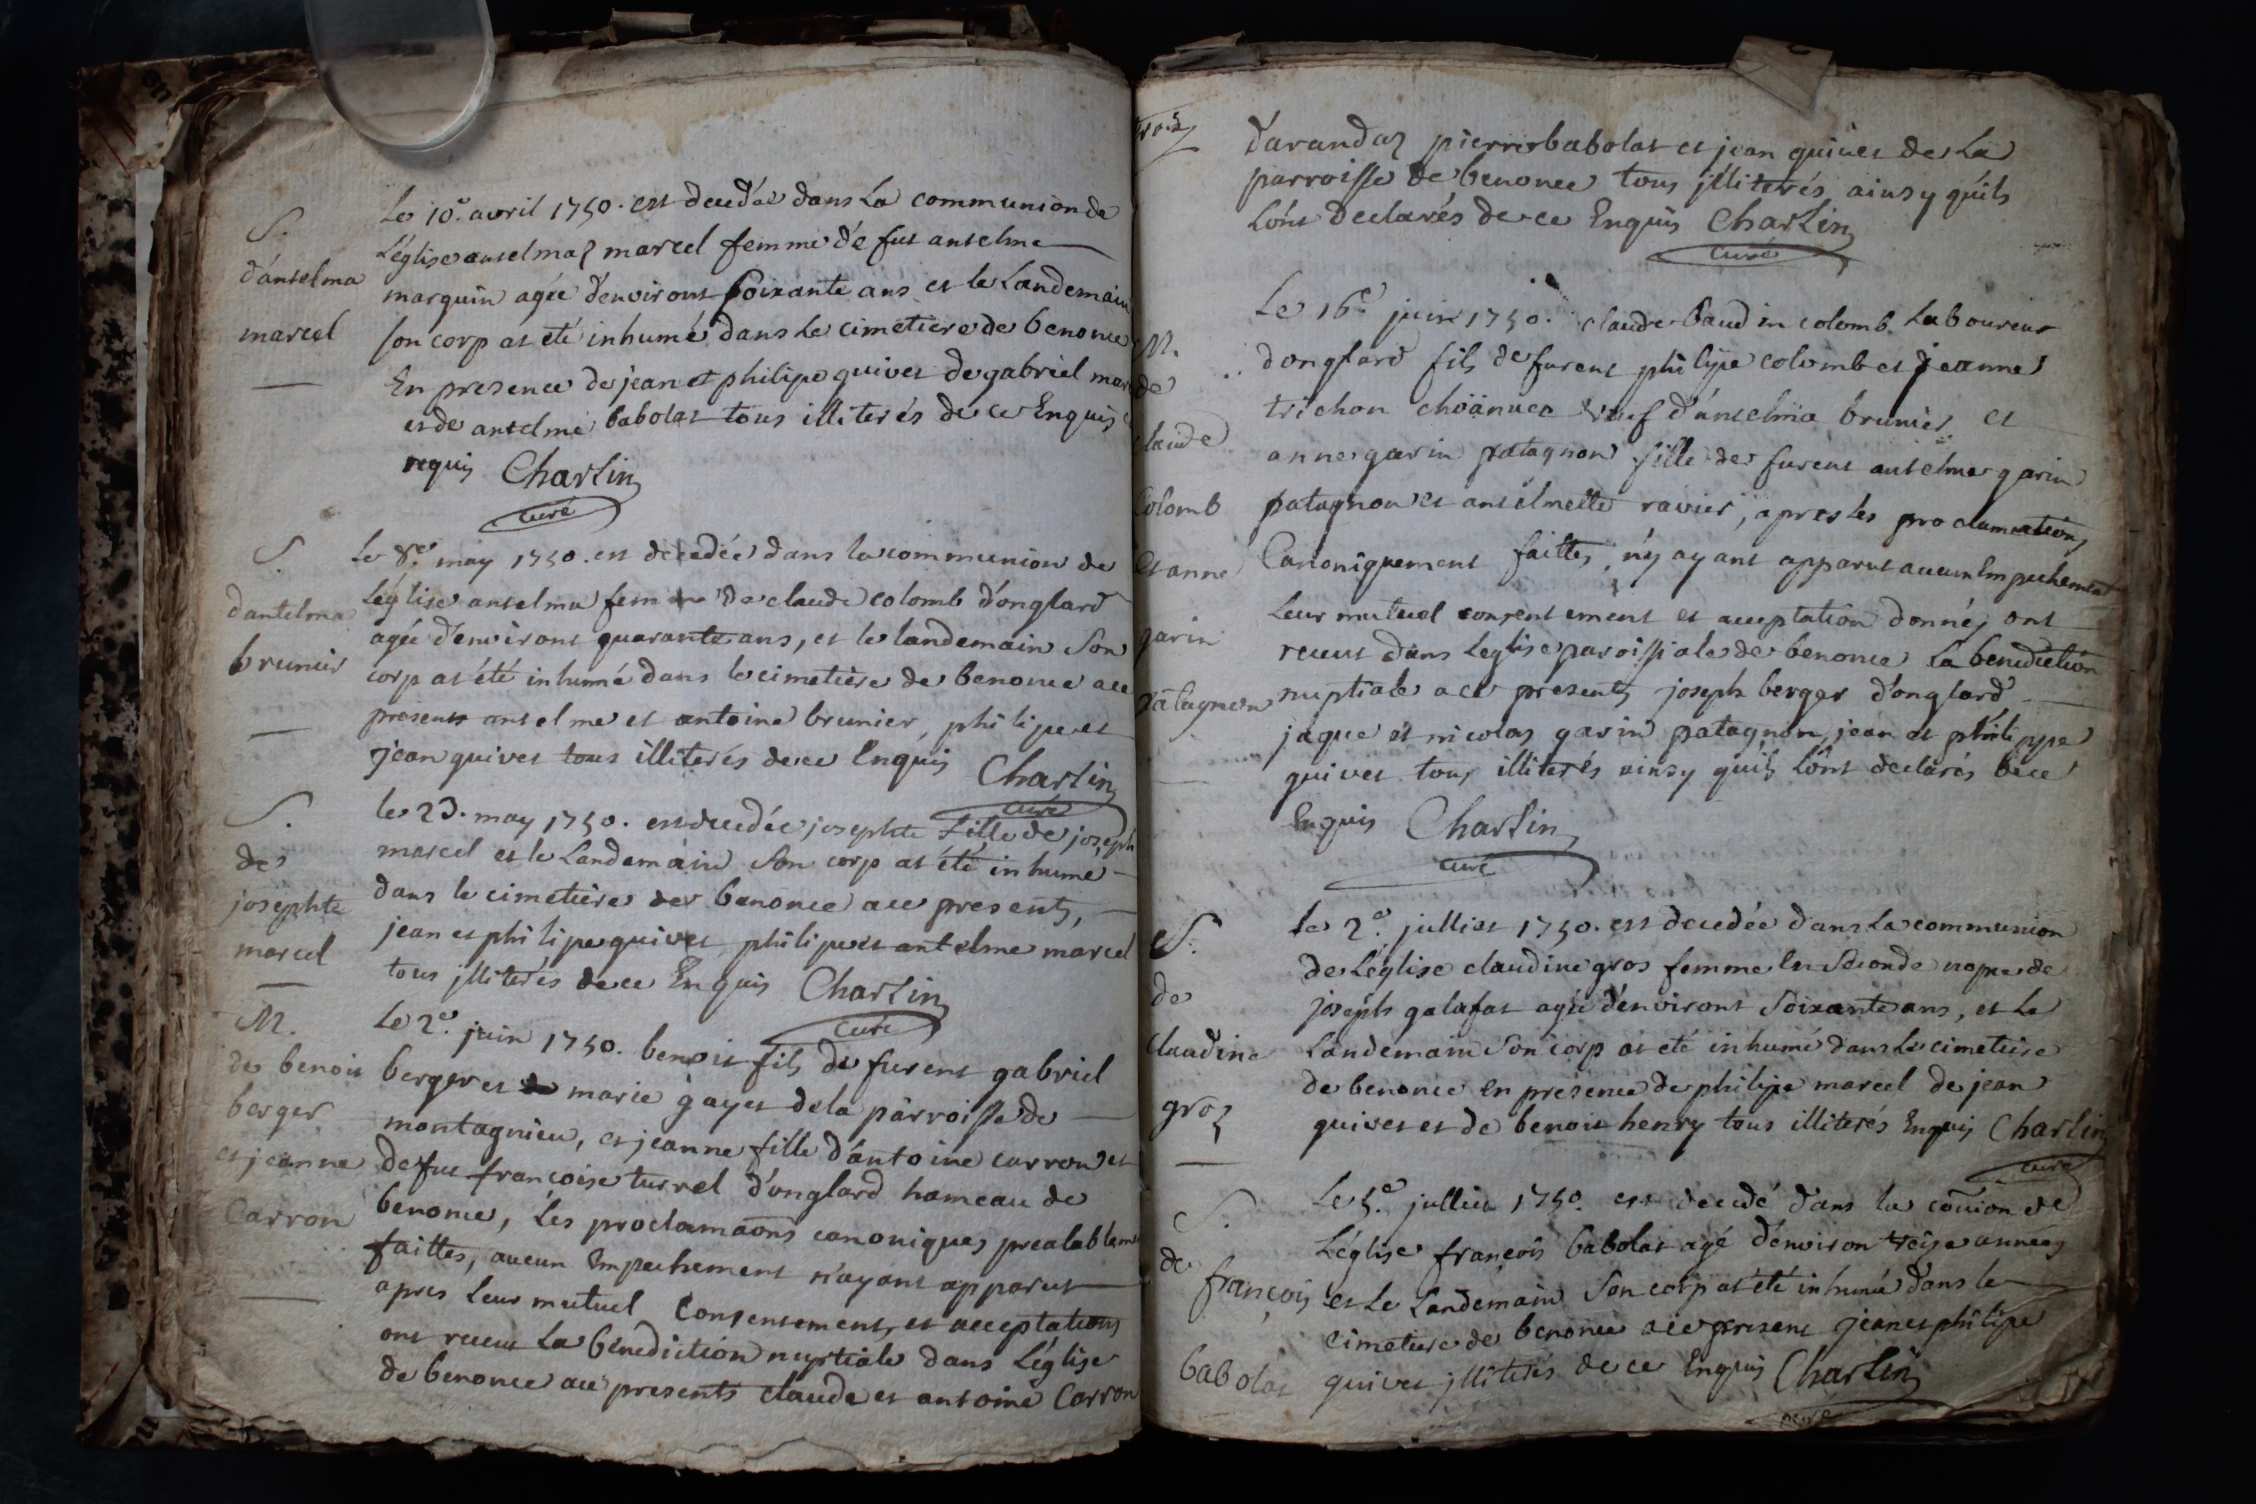 S.
d'antelma
marcel
Le 10e. avril 1750. est decedée dans La communion de
L'église antelmaz marcel femme de fut antelme
marguin agée d'environt soixante ans et le Landemain
son corp at eté inhumé dans le cimetiere de benonce
En presence de jean et philipe quivet de gabriel mar
et de antelme babolat tous illiterés de ce Enquis
requis Charlin
curé
S.
d'antelma
brunier
Le 8e. may 1750. est decedée dans la communion de
L'église antelma femme de claude colomb d'onglard
agée d'environt quarante ans, et le landemain son
corp at été inhumé dans le cimetière de benonce ace
presents antelme et antoine brunier, philipe et
jean quivet tous illiterés de ce Enquis Charlin
curé
S.
de
josephte
marcel
le 23. may 1750. est decedée josephte fille de joseph
marcel et le Landemain son corp at été inhumé
dans le cimetiere de benonce ace presents,
jean et philipe quivet philipe et antelme marcel
tous jlliterés de ce Enquis Charlin
curé
M.
de benoit
berger
et jeanne
Carron
Le 2e. juin 1750. benoit fils de furent gabriel
berger et marie gayet de la parroisse de
montagnieu, et jeanne fille d'antoine carron et
de fut françoise turrel d'onglard hameau de
benonce, Les proclamaons canoniques prealablem
faittes, aucun Empechement n'ayant apparut
apres Leur mutuel Consentement, et acceptations
ont receu La bénédiction nuptiale dans L'église
de benonce ace presents claude et antoine Carron
d'arandaz pierre babolat et jean quivet de La
parroisse de benonce tous jlliterés ainsy quils
Lont Declarés de ce Enquis Charlin
curé
M.
de
claude
Colomb
Et anne
garin
patagnon
Le 16e. juin 1750. claude baudin colomb Laboureur
donglard fils de furent philipe colomb et jeanne
trichon veuf d'antelma brunier et
anne garin patagnon fille de furent antelme garin
patagnon et antelmette ravier, apres les proclamations
Canoniquement faittes, n'y ayant apparut aucun Empechement
Leur mutuel consentement et acceptation donnés ont
receut dans Leglise paroissiale de benonce La benediction
nuptiale ace presents joseph berger d'onglard
jaque et nicolas garin patagnon, jean et philippe
quivet tous illiterés ainsy quils Lont declarés de ce
Enquis Charlin
curé
S.
de
Claudine
groz
le 2e. julliet 1750. est decedée dans La communion
de L'église claudine gros femme En seconde nopce de
joseph galafat agée d'environt soixante ans, et Le
Landemain son corp at eté inhumé dans Le cimetiere
de benonce En presence de philipe marcel de jean
quivet et de benoit henry tous illiterés Enquis Charlin
curé
S.
de
françois
babolat
Le 5e. julliet 1750. est decedé dans la couion de
L'église françois babolat agé d'environ treize années
et Le Landemain son corp at été inhumé dans le
cimetiere de benonce ace present jean et philipe
quivet jlliterés de ce Enquis Charlin
curé